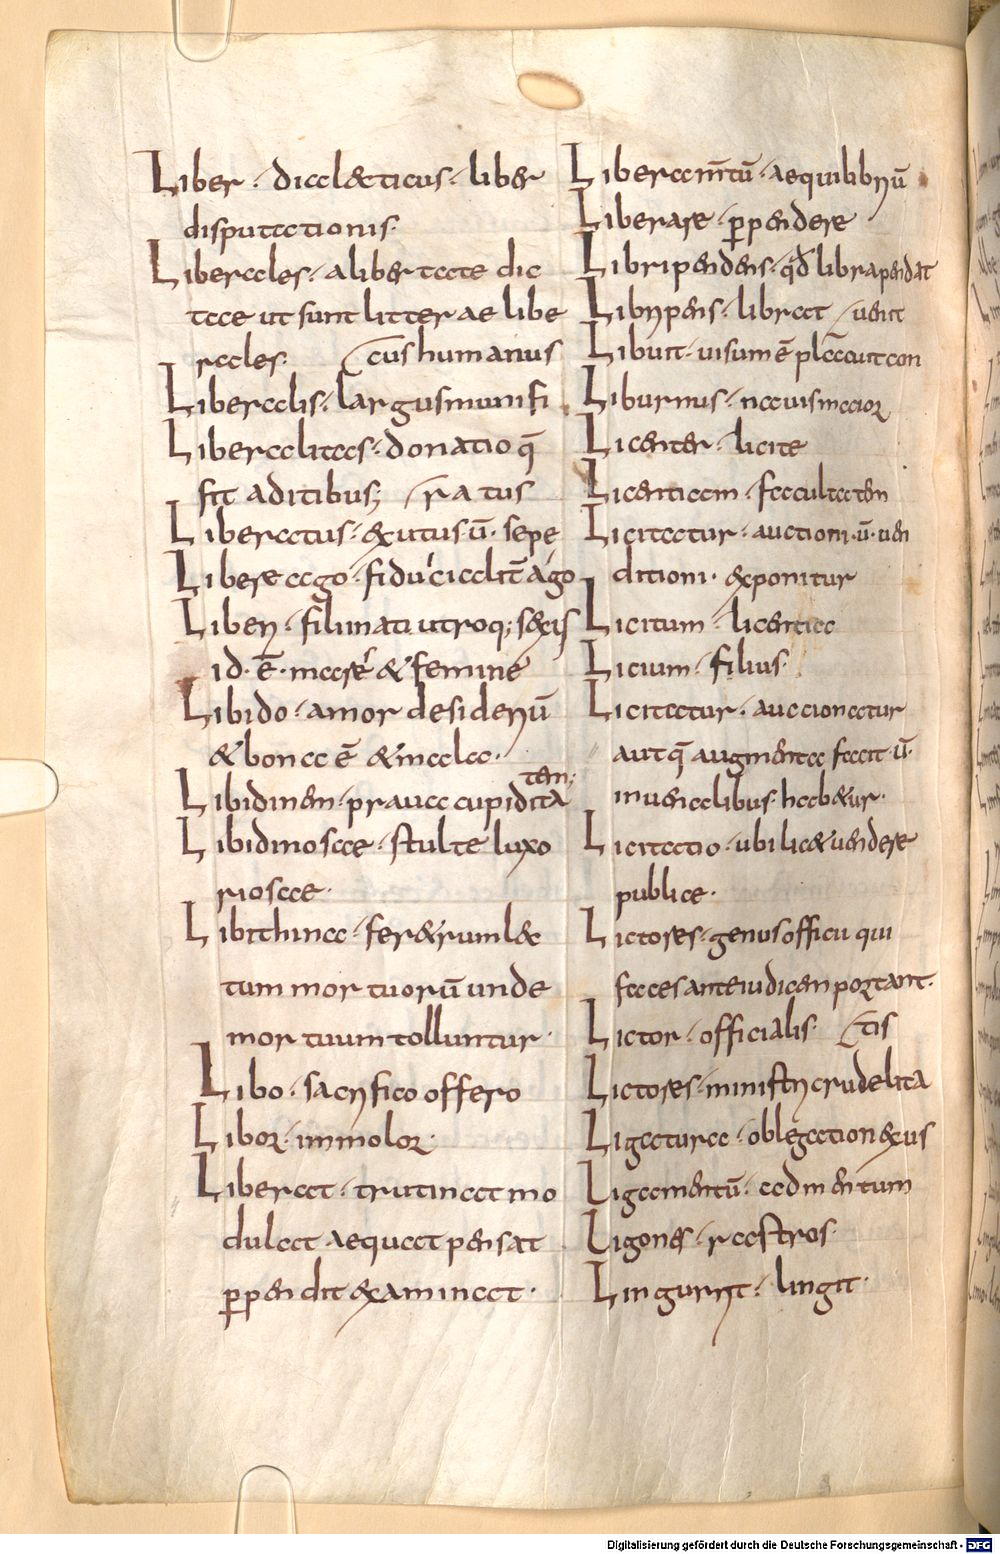 Liber · dialecticus · liber
disputationis ·
Liberales · a libertate dic
tae ut sunt litterae libe
rales · cus humanus
Liberalis · largus munifi
Liberalitas · donatio q̄
fit aditibus; ratus
Liberatus · exutus · ū · sepe
Libere ago · fiducialit̄ ago
Liberi · filii nati utroq; sexus
id · ē · mascre & femine
Libido · amor desideriū
& bona ē & mala ·
tem;
Libidinem · praua cupidita
Libidinosae · stulte luxo
riosae ·
Libithina · feretrum lec
tum mortuorū unde
mortuum tolluntur ·
Libo · sacrifico offero
Libor · immolor ·
Liberat · trutinat mo
dulat aequat pensat
ꝑpendit examinat ·
Liberam̄tū · aequilibriū
Liberare · ꝑpendere
Libripendens · qđ libra pendat
Libripens · librat uenit
Libuit · uisum ē placuit con
Liburnus · nauis maior
Licenter · licite
Licentiam · facultatem
Licitatur · auctioni · ū · uen
ditioni · exponitur
Licitum · licentia
Licium · filius ·
Licitatur · auccionatur
aut q̄ augmenta facit ū ·
in uenalibus habetur ·
Licitatio · ubi licet uendere
publice ·
Lictores · genus officii qui
faces ante iudicem portant ·
Lictor · officialis · tis
Lictores · ministri crudelita
Ligatura · oblegation exus
Ligamentū · admentum
Ligones · rastros ·
Lingurrit · lingit ·
Digitalisierung gefördert durch die Deutsche Forschungsgemeinschaft - DFG